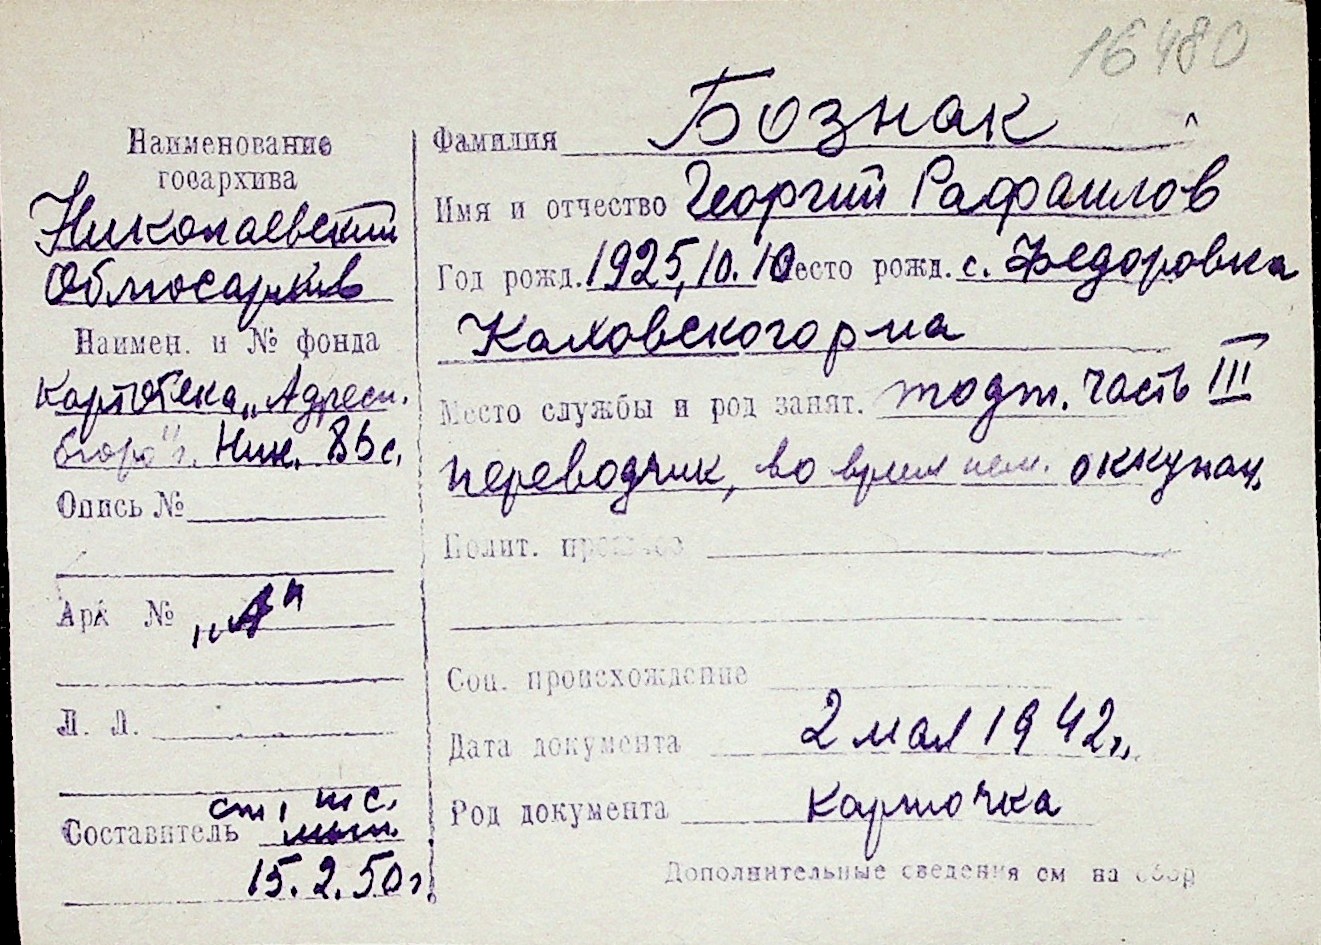 16480
Наименование
госархива
Николаевский
Облгосархив
Наимен. и № фонда
Картотека „Адресн.
бюро" г. Ник.
Опись №
Арх №
„А"
Л. Л.
ст.
Составитель
15.2.50г.
Фамилия Бознак
Имя и отчество Георгий Рафаилов
Год рожд. 1925, 10. 10 Место рожд. с. Федоровка
Каховского р-на
Место службы и род занят. часть III
переводчик, во время нем. оккупац.
Полит. прошлое
Соц. происхождение
Дата документа 2 мая 1942г.
Род документа Карточка
Дополнительные сведения см на обор